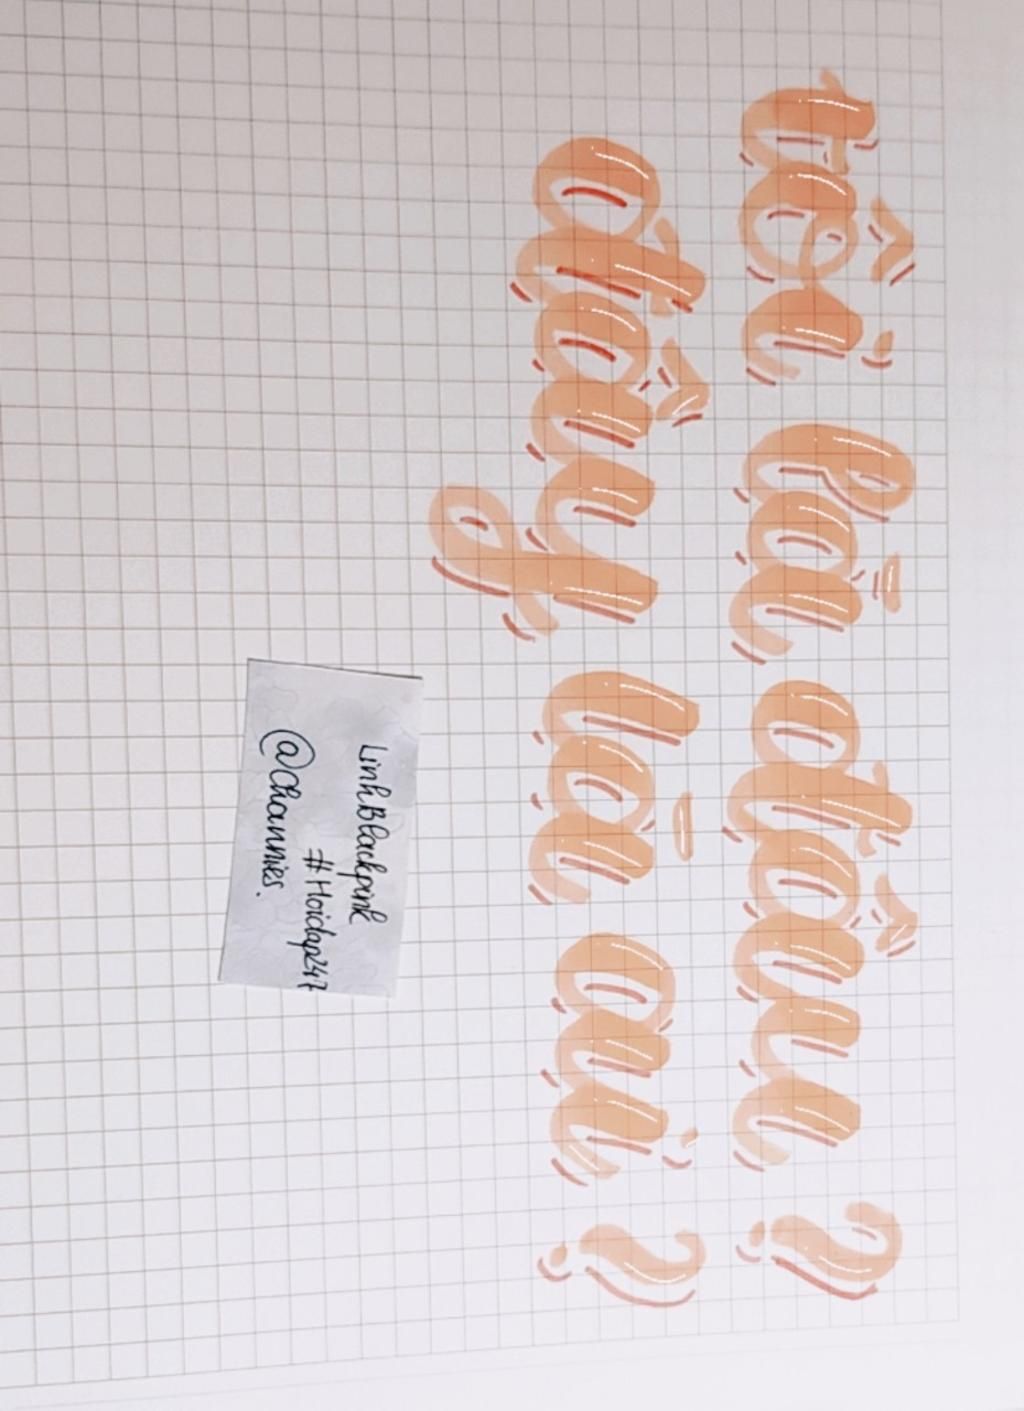 tôi là đâu ?
đây là ai ?
LinhBlackpink
#Hoidap247
@Channies.